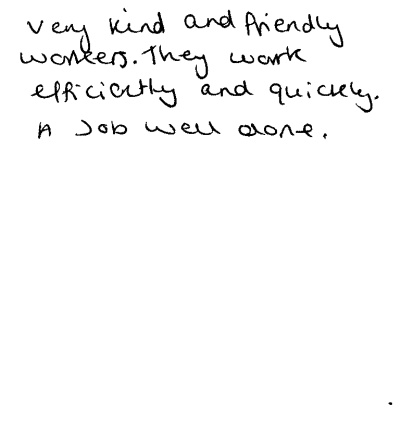 Very kind and friendly
workers. They work
efficiently and quickly.
A Job well done.